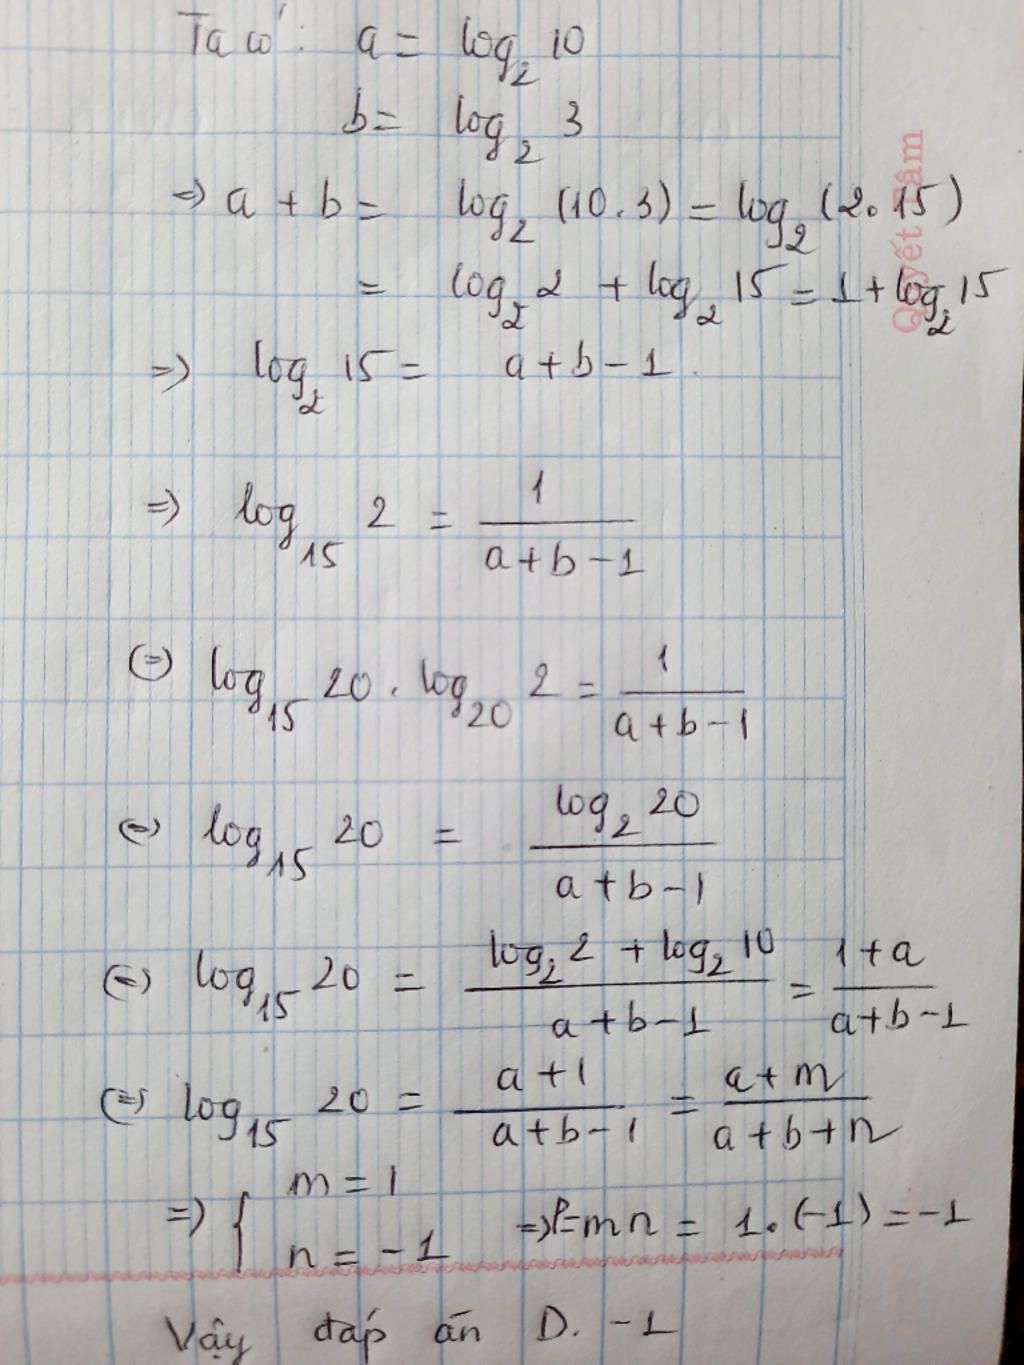 Ta có: a = log₂ 10
b = log₂ 3
=> a + b = log₂ (10.3) = log₂ (2.15)
= log₂ 2 + log₂ 15 = 1 + log₂ 15
=> log₂ 15 = a + b - 1.
=> log₁₅ 2 = 1 / (a + b - 1)
(=) log₁₅ 20 . log₂₀ 2 = 1 / (a + b - 1)
(=) log₁₅ 20 = log₂ 20 / (a + b - 1)
(=) log₁₅ 20 = (log₂ 2 + log₂ 10) / (a + b - 1) = (1 + a) / (a + b - 1)
(=) log₁₅ 20 = (a + 1) / (a + b - 1) = (a + m) / (a + b + n)
=> { m = 1
n = -1 => P = mn = 1.(-1) = -1
Vậy đáp án D. -1
Quyết Tâm